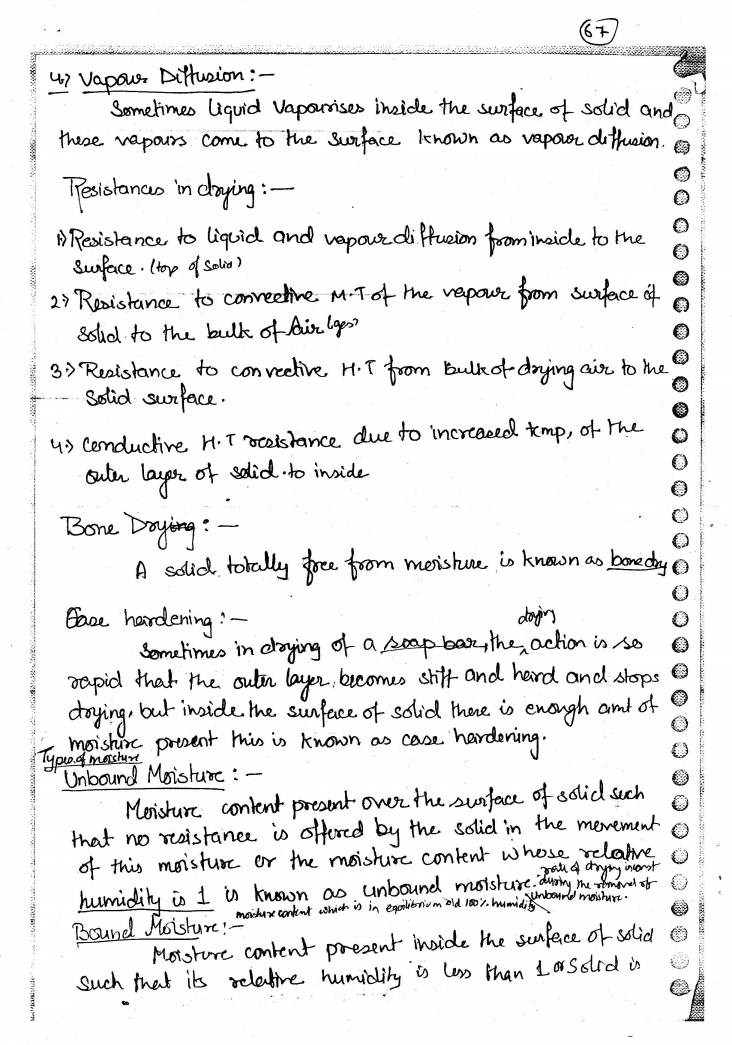 67
4.) Vapour Diffusion :-
Sometimes liquid vapourises inside the surface of solid and
these vapours come to the surface known as vapour diffusion.
Resistances in drying :—
1) Resistance to liquid and vapour diffusion from inside to the
surface. (top of solid)
2) Resistance to convective M.T of the vapour from surface of
solid to the bulk of Air (gas)
3) Resistance to convective H.T from bulk of drying air to the
solid surface.
4) conductive H.T resistance due to increased temp, of the
outer layer of solid to inside
Bone Drying :—
A solid totally free from moisture is known as bone dry
Case hardening :—
drying
Sometimes in drying of a soap bar, the action is so
rapid that the outer layer becomes stiff and hard and stops
drying, but inside the surface of solid there is enough amt of
moisture present this is known as case hardening.
Types of moisture
Unbound Moisture :—
Moisture content present over the surface of solid such
that no resistance is offered by the solid in the movement
of this moisture or the moisture content whose relative
rate of drying is
humidity is 1 is known as unbound moisture. during the removal of
unbound moisture.
moisture content which is in equilibrium 100% humidity
Bound Moisture :—
Moisture content present inside the surface of solid
such that its relative humidity is less than 1 or Solid is